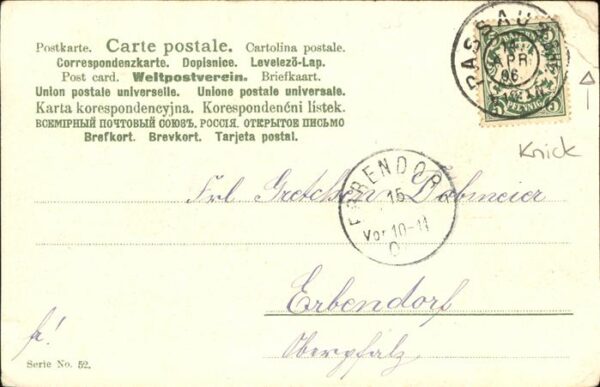 Postkarte. Carte postale. Cartolina postale.
Correspondenzkarte. Dopisnice. Levelező-Lap.
Post card. Weltpostverein. Briefkaart.
Union postale universelle. Unione postale universale.
Karta korespondencyjna. Korespondenční lístek.
ВСЕМІРНЫЙ ПОЧТОВЫЙ СОЮЗЪ. РОССІЯ. ОТКРЫТОЕ ПИСЬМО
Brefkort. Brevkort. Tarjeta postal.
PASSAU
APR
06
Knick
ERBENDORF
15
Vor 10-11
Frl. Gretchen
Erbendorf
Oberpfalz
Serie No. 52.